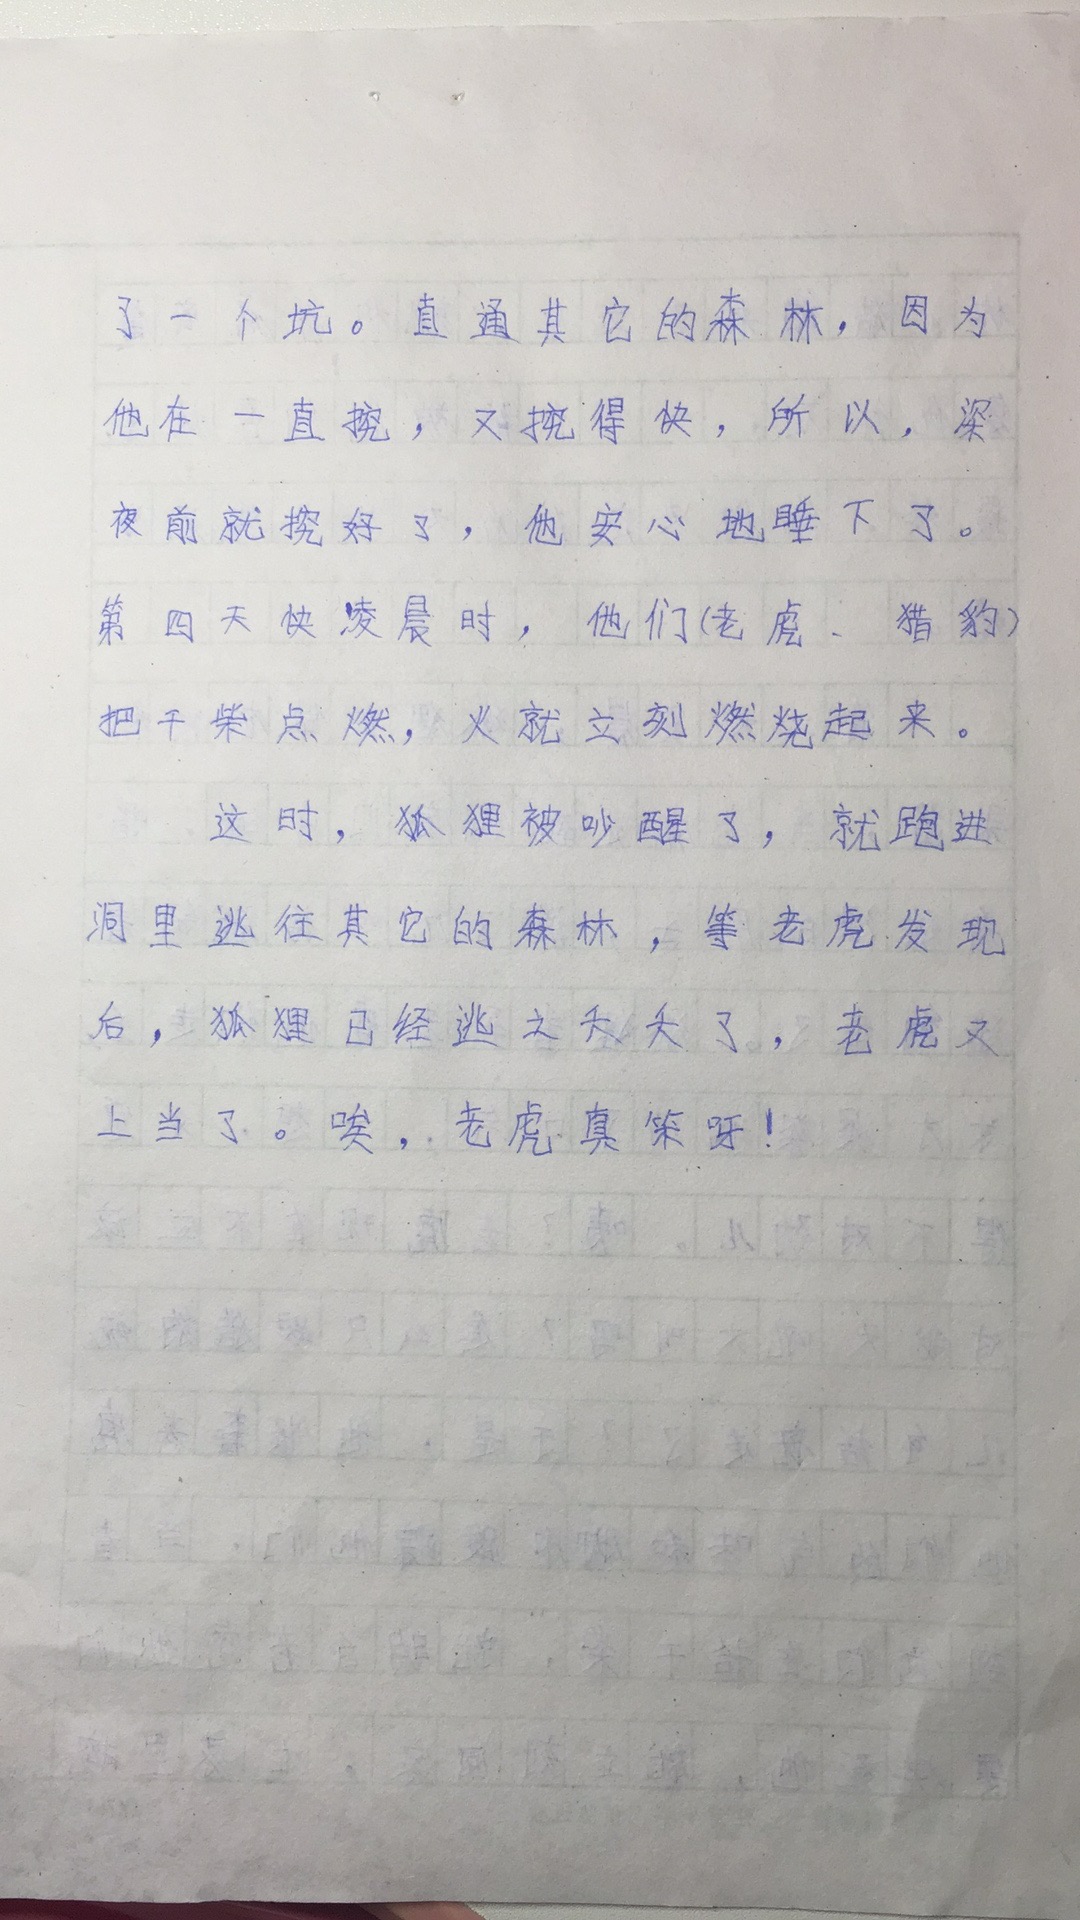 了一个坑。直通其它的森林，因为
他在一直挖，又挖得快，所以，深
夜前就挖好了，他安心地睡下了。
第四天快凌晨时，他们(老虎、猎豹)
把干柴点燃，火就立刻燃烧起来。
这时，狐狸被吵醒了，就跑进
洞里逃往其它的森林，等老虎发现
后，狐狸已经逃之夭夭了，老虎又
上当了。唉，老虎真笨呀！